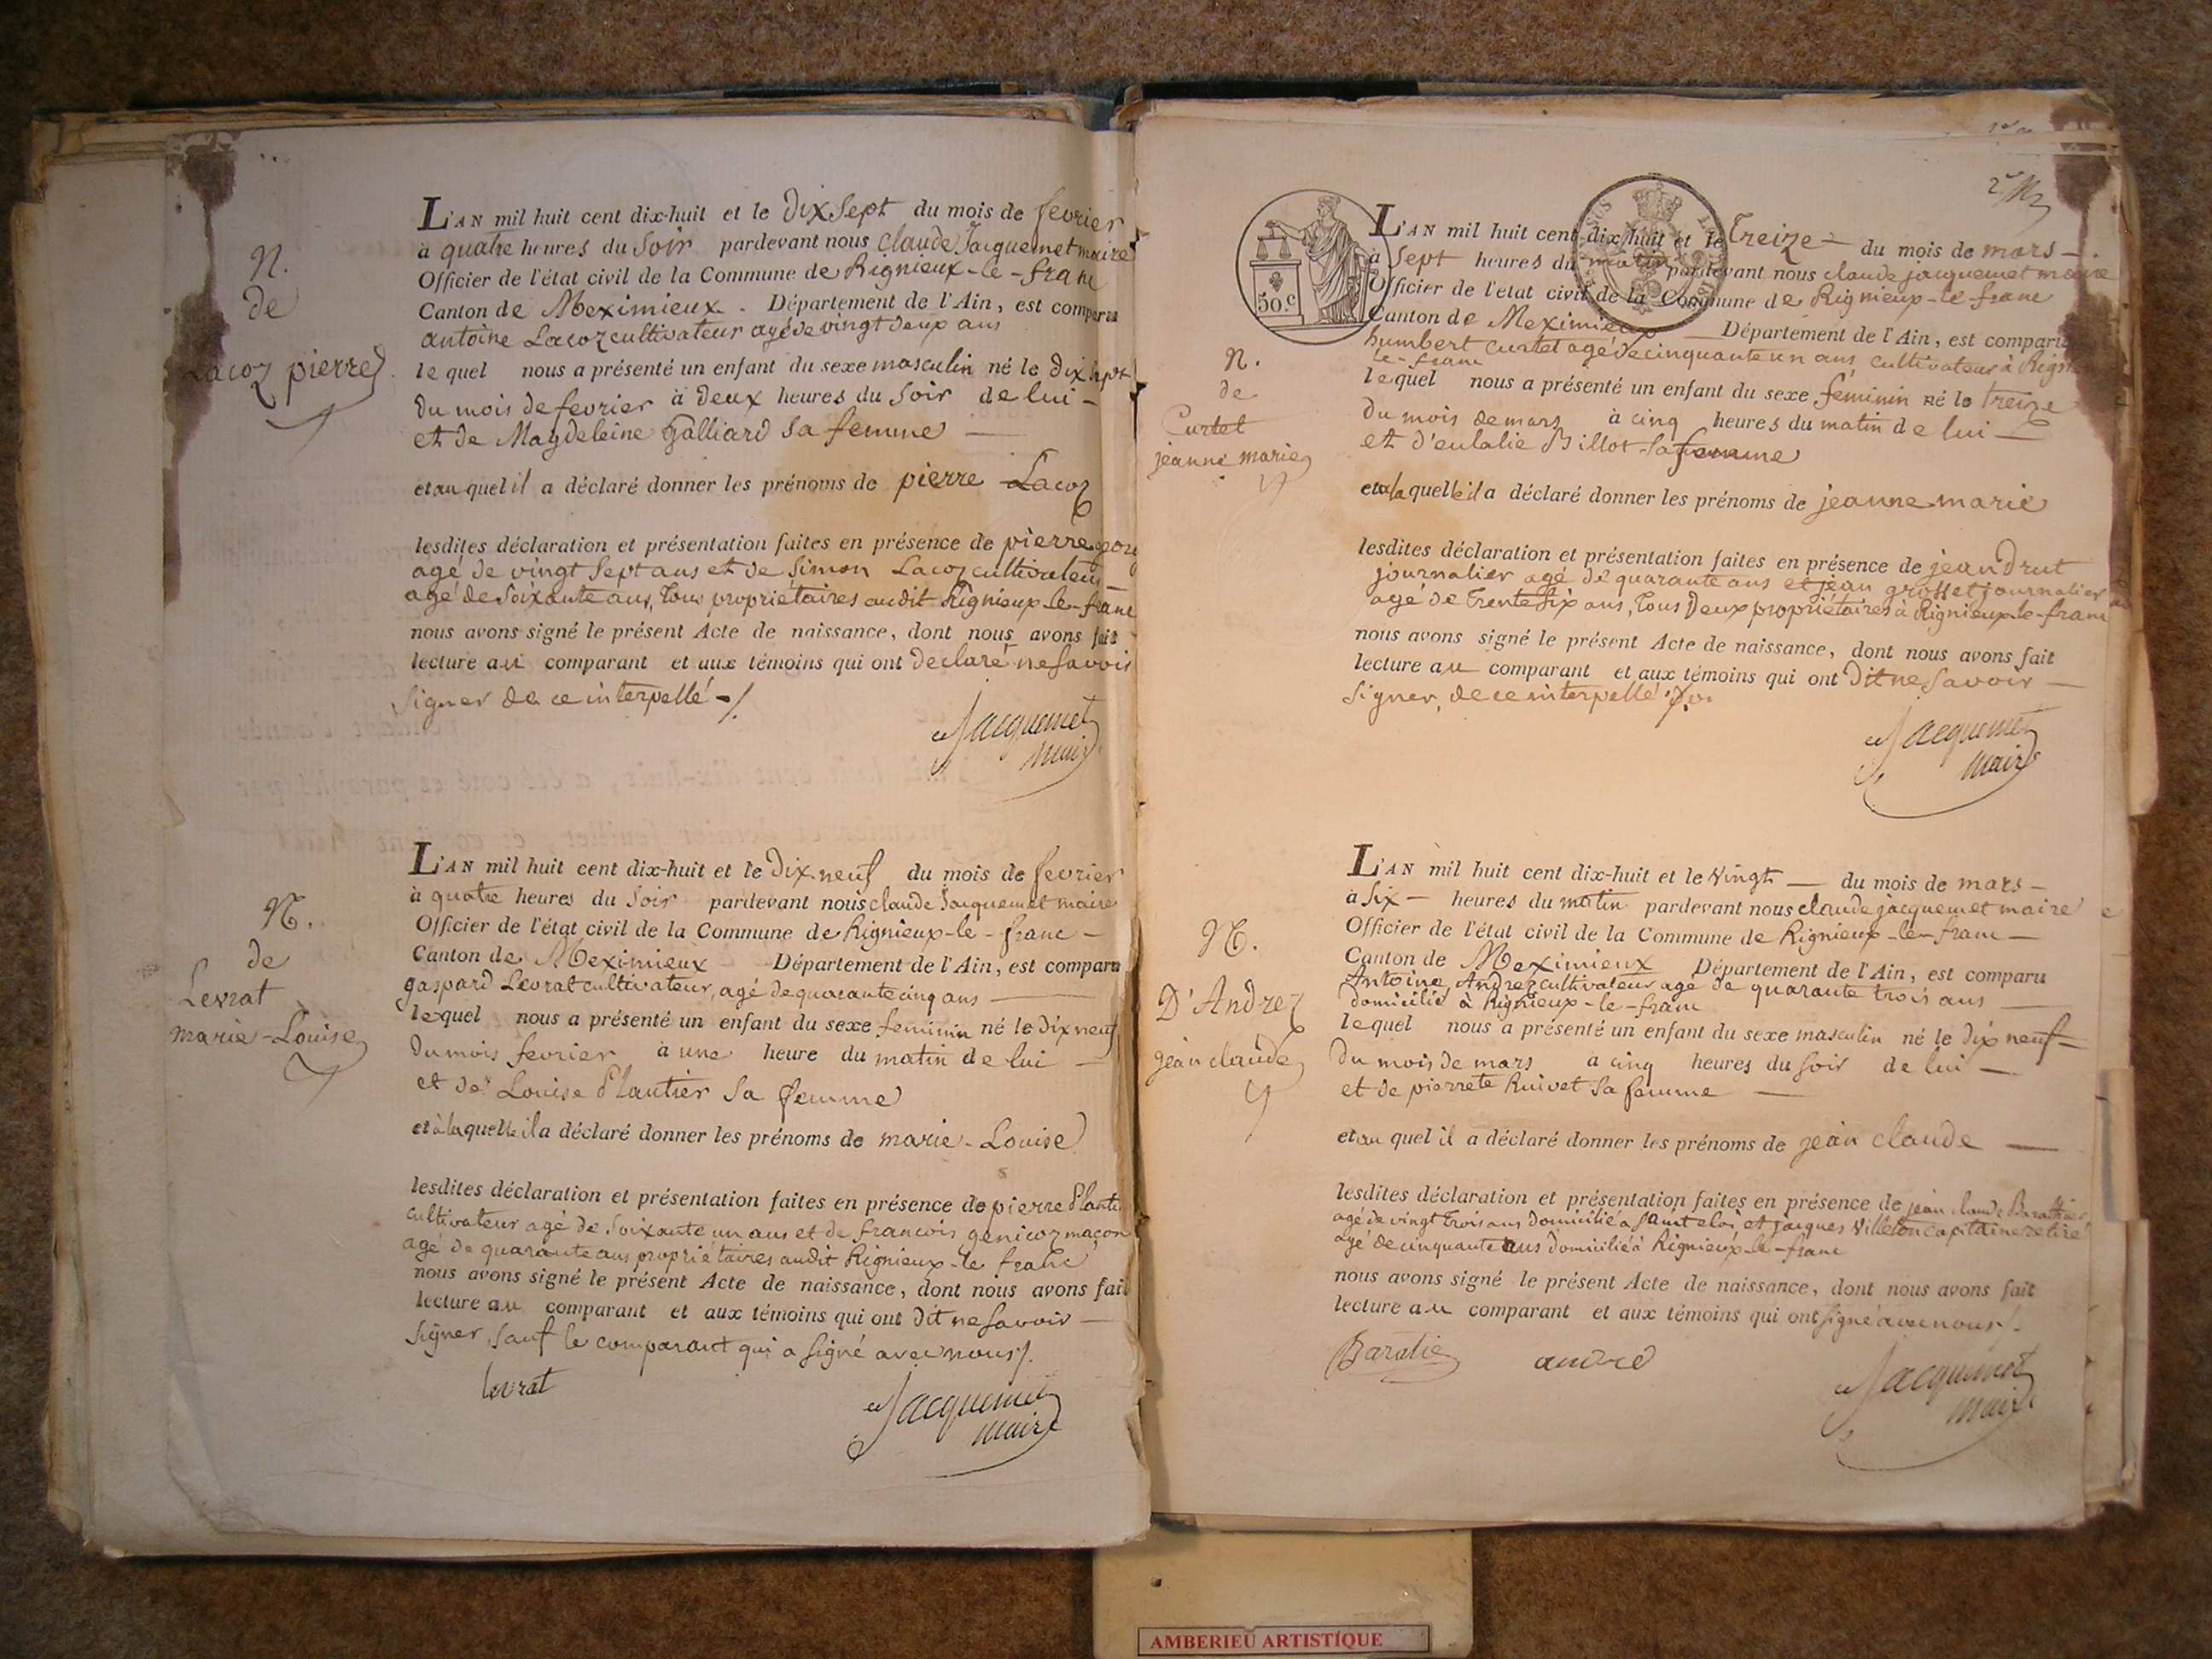 N.
de
Lacoz pierre
L'AN mil huit cent dix-huit et le Dix sept du mois de fevrier
à quatre heures du soir pardevant nous claude Jacquemet maire
Officier de l'état civil de la Commune de Rignieux-le-franc
Canton de Meximieux. Département de l'Ain, est comparu
antoine Lacoz cultivateur agé de vingt deux ans
lequel nous a présenté un enfant du sexe masculin né le dix sept
du mois de fevrier à deux heures du soir de lui -
et de Magdeleine Galliard sa femme
et au quel il a déclaré donner les prénoms de pierre Lacoz
lesdites déclaration et présentation faites en présence de pierre
agé de vingt sept ans et de simon Lacoz cultivateur
agé de soixante ans, tous propriétaires audit Rignieux-le-franc
nous avons signé le présent Acte de naissance, dont nous avons fait
lecture au comparant et aux témoins qui ont declaré ne savoir
signer de ce interpellé ./.
Jacquemet
maire
N.
de
Levrat
marie-Louise
L'AN mil huit cent dix-huit et le Dix neuf du mois de fevrier
à quatre heures du soir pardevant nous claude Jacquemet maire
Officier de l'état civil de la Commune de Rignieux-le-franc -
Canton de Meximieux Département de l'Ain, est comparu
gaspard Levrat cultivateur, agé de quarante cinq ans
lequel nous a présenté un enfant du sexe feminin né le Dix neuf
du mois fevrier à une heure du matin de lui -
et de Louise Plantier sa femme
et à laquelle il a déclaré donner les prénoms de marie-Louise
lesdites déclaration et présentation faites en présence de pierre Plantier
cultivateur agé de soixante un ans et de francois genicoz maçon
agé de quarante ans propriétaires audit Rignieux-le franc
nous avons signé le présent Acte de naissance, dont nous avons fait
lecture au comparant et aux témoins qui ont dit ne savoir -
signer, sauf le comparant qui a signé avec nous ./.
levrat
Jacquemet
maire
50.c
N.
de
Curtet
jeanne marie
L'AN mil huit cent dix-huit et le Treize - du mois de mars -
à sept heures du matin pardevant nous claude jacquemet maire
Officier de l'état civil de la Commune de Rignieux-le-franc
Canton de Meximieux Département de l'Ain, est comparu
humbert Curtet agé de cinquante un ans, cultivateur à Rignieux
le-franc
lequel nous a présenté un enfant du sexe feminin né le treize
du mois de mars à cinq heures du matin de lui -
et d'eulalie Billot sa femme
et à laquelle il a déclaré donner les prénoms de jeanne marie
lesdites déclaration et présentation faites en présence de jean Drut
journalier agé de quarante ans et jean grosset journalier
agé de trente six ans, tous deux propriétaires à Rignieux-le-franc
nous avons signé le présent Acte de naissance, dont nous avons fait
lecture au comparant et aux témoins qui ont dit ne savoir -
signer, de ce interpellé ./.
Jacquemet
maire
N.
D'Andrez
jean claude
L'AN mil huit cent dix-huit et le vingt - du mois de mars -
à six - heures du matin pardevant nous claude jacquemet maire
Officier de l'état civil de la Commune de Rignieux-le-franc -
Canton de Meximieux Département de l'Ain, est comparu
Antoine Andrez cultivateur agé de quarante trois ans
domicilié à Rignieux-le-franc
lequel nous a présenté un enfant du sexe masculin né le dix neuf -
du mois de mars à cinq heures du soir de lui -
et de pierrete Ruivet sa femme -
et au quel il a déclaré donner les prénoms de jean claude -
lesdites déclaration et présentation faites en présence de jean claude Barathier
agé de vingt trois ans domicilié à saint eloi et jacques Villeton capitaine retiré
agé de cinquante ans domicilié à Rignieux-le-franc
nous avons signé le présent Acte de naissance, dont nous avons fait
lecture au comparant et aux témoins qui ont signé avec nous ./.
Baratie
andré
Jacquemet
maire
AMBERIEU ARTISTIQUE